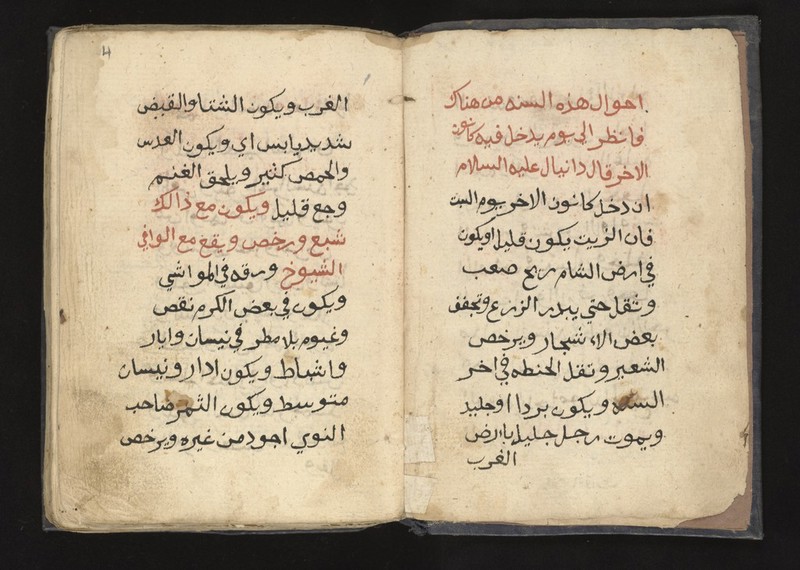 احوال هذه السنه من هناك
فانظر الى يوم يدخل فيه كانون
الاخر قال دانيال عليه السلام
ان دخل كانون الاخر يوم السبت
فان الزيت يكون قليلا ويكون
في ارض الشام ريح صعب
وثقل حتي يبدر الزرع وتجفف
بعض الاشجار ويرخص
الشعير وتقل الحنطه في اخر
السنه ويكون بردا وجليد
ويموت رجل جليل بارض
الغرب
4
الغرب ويكون الشتا والقبض
شديد يابس اي ويكون العدس
والحمص كثير ويلحق الغنم
وجع قليل ويكون مع ذالك
شبع ورخص ويقع مع
الشيوخ ورقه في المواشي
ويكون في بعض الكرم نقص
وغيوم بلا مطر في نيسان وايار
واشباط ويكون ادار ونيسان
متوسط ويكون الثمر صاحب
النوي اجود من غيره ويرخص